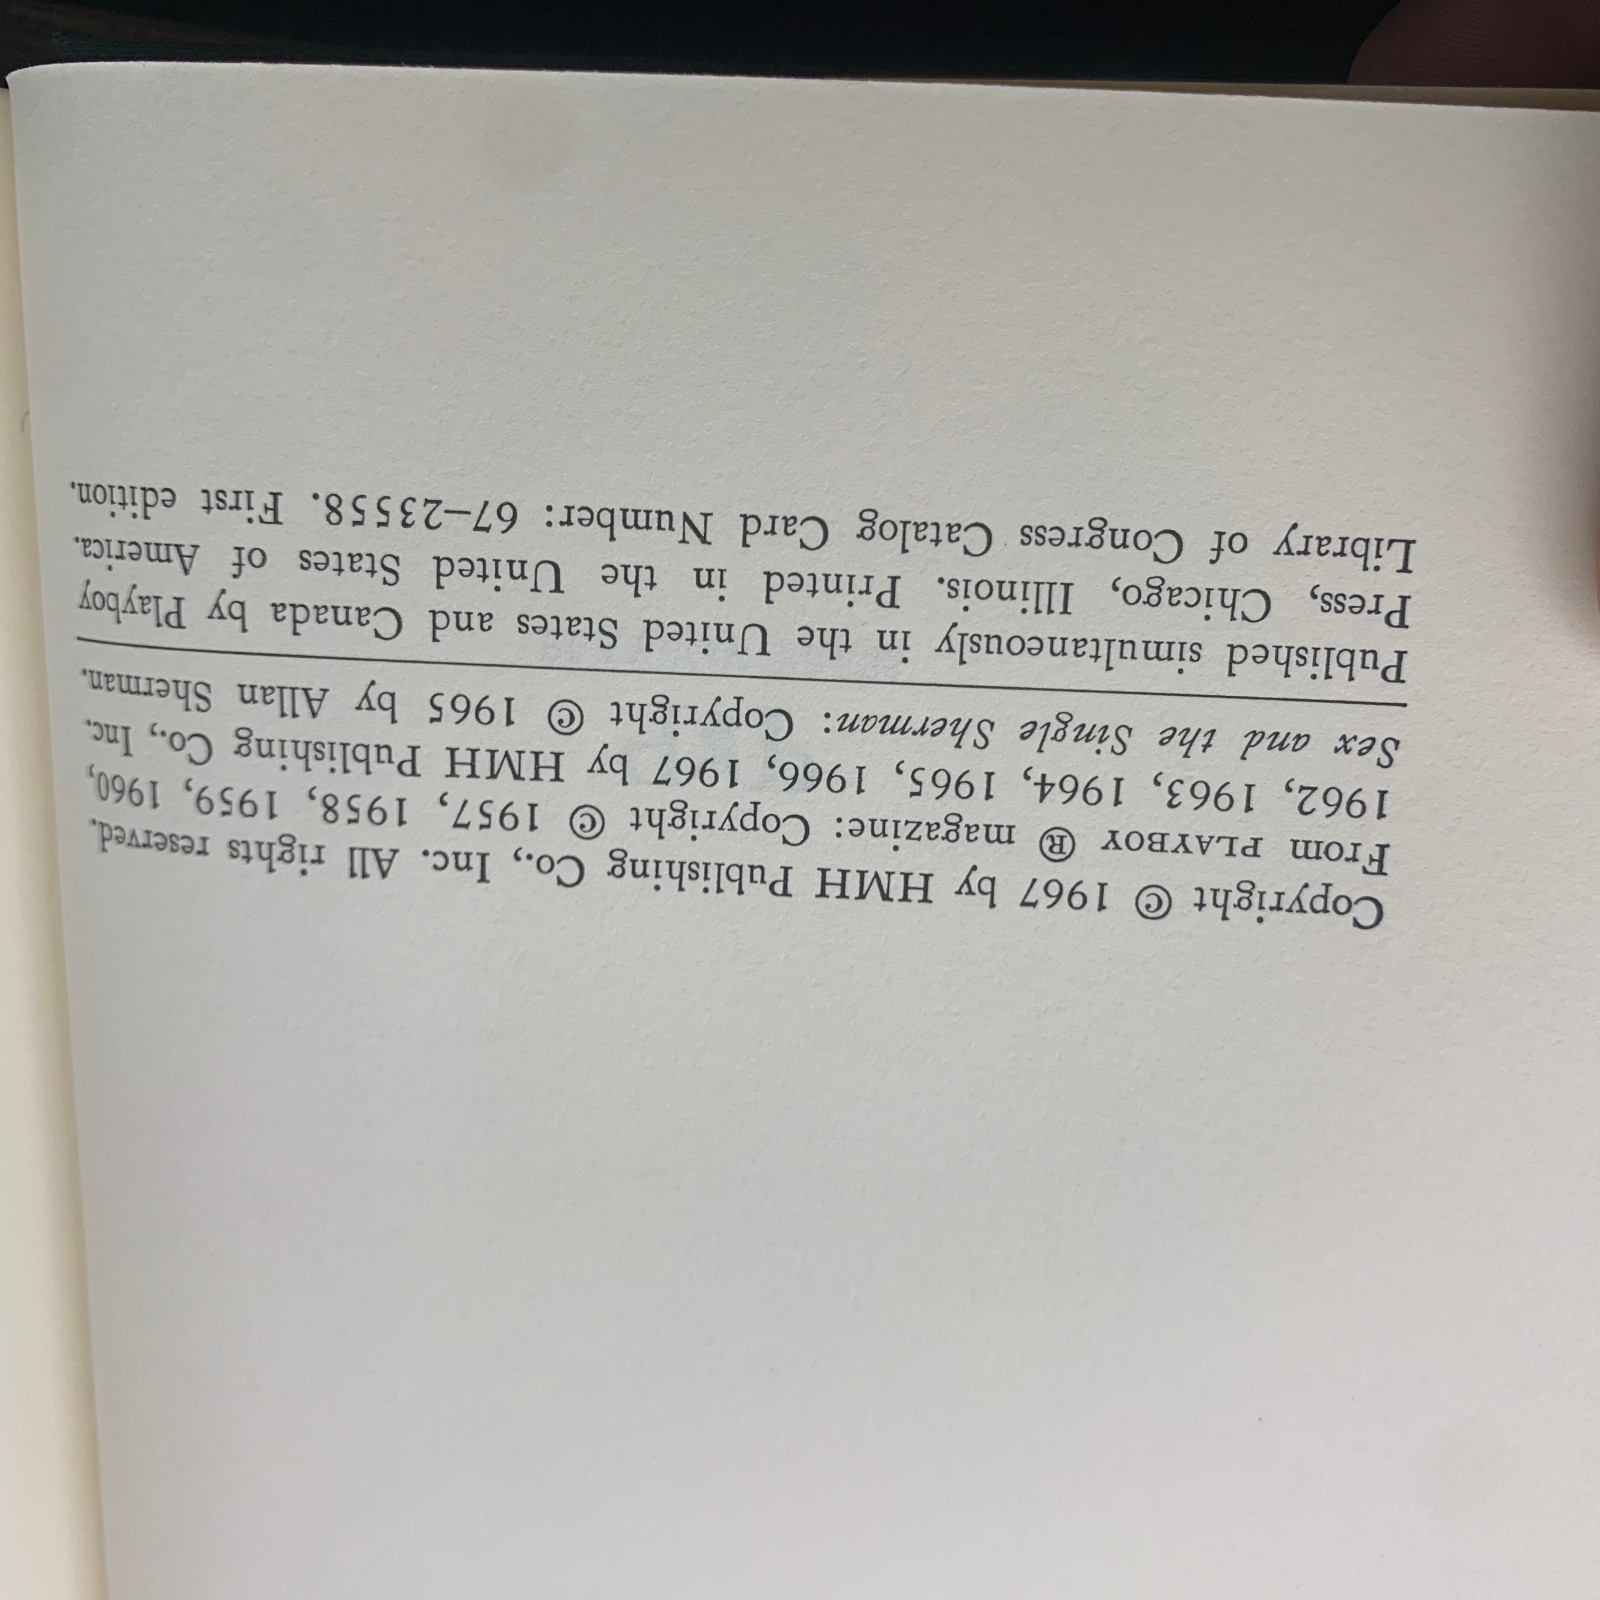 Copyright © 1967 by HMH Publishing Co., Inc. All rights reserved.
From PLAYBOY ® magazine: Copyright © 1957, 1958, 1959, 1960,
1962, 1963, 1964, 1965, 1966, 1967 by HMH Publishing Co., Inc.
Sex and the Single Sherman: Copyright © 1965 by Allan Sherman.
Published simultaneously in the United States and Canada by Playboy
Press, Chicago, Illinois. Printed in the United States of America.
Library of Congress Catalog Card Number: 67–23558. First edition.